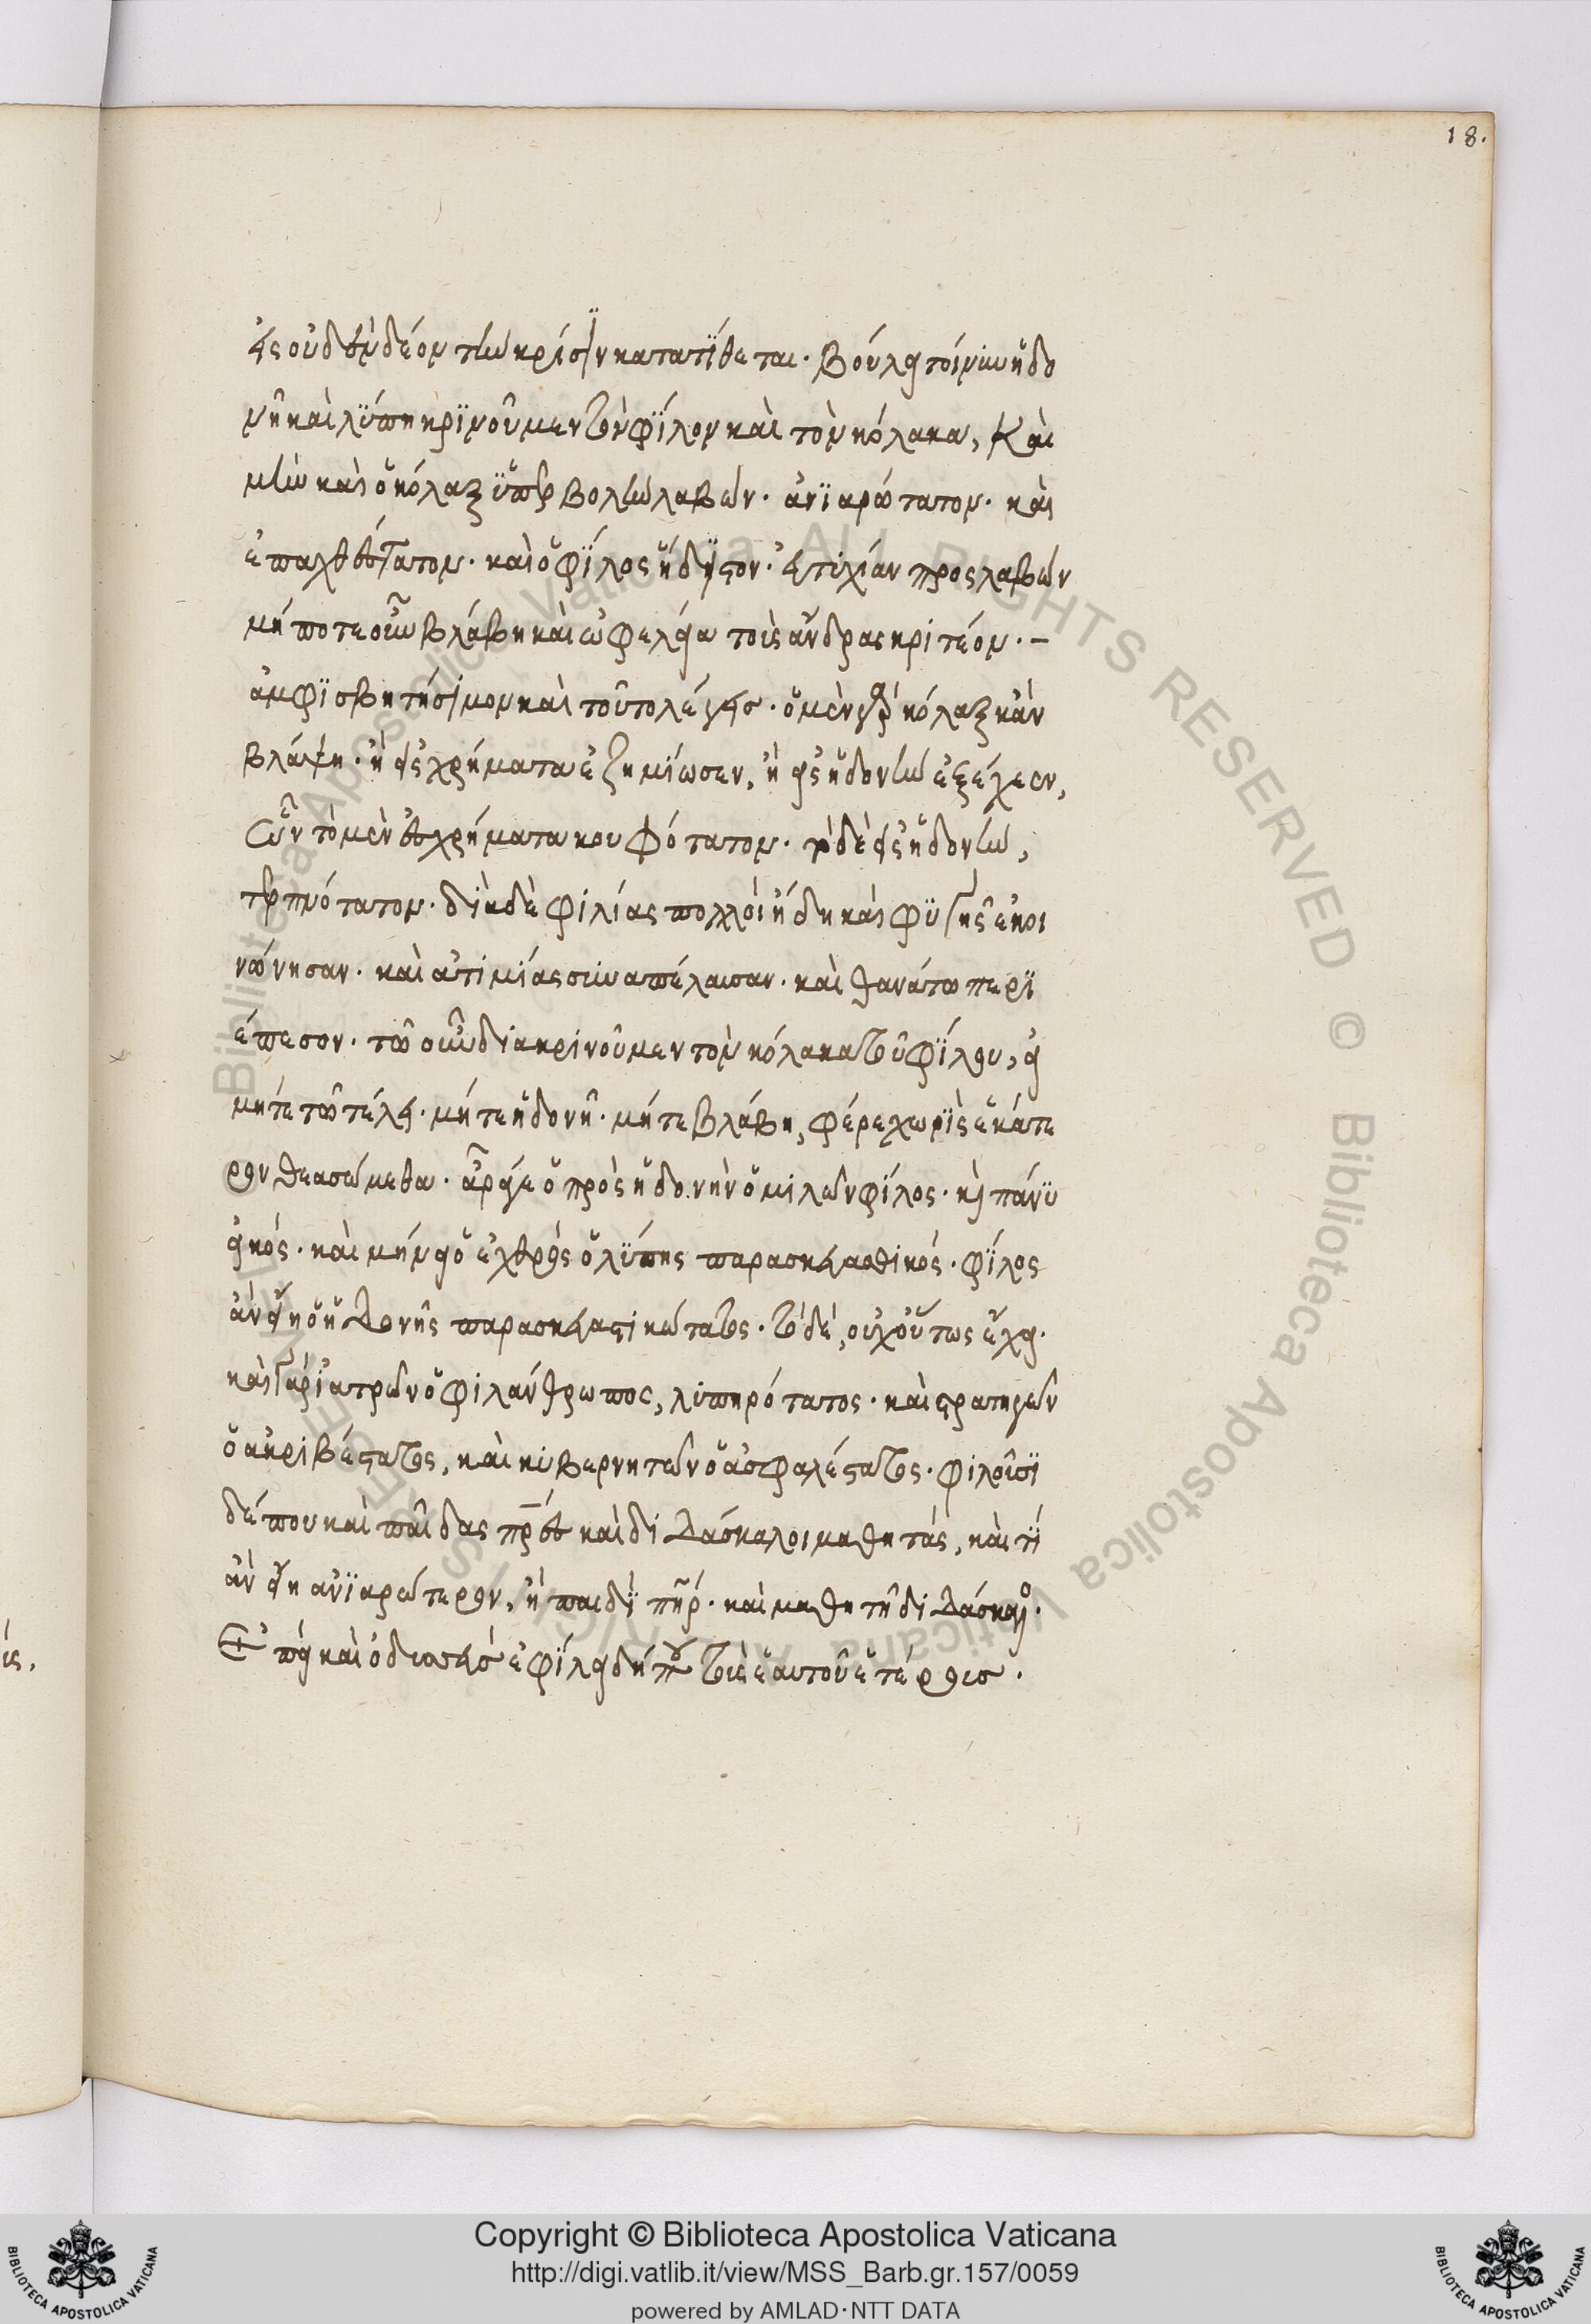 18.
ἐς οὐδὲν δέον τὴν κρίσϊν κατατίθεται. βούλει τοίνυν ἡδο
νῆ καὶ λύπη κρϊνοῦμεν τὸν φίλον καὶ τὸν κόλακα, καὶ
μὴν καὶ ὁ κόλαξ ὑπερβολὴν λαβὼν. ἀνϊαρώτατον. καὶ
ἐπαχθέστατον. καὶ ὁ φίλος ἥδϊστον. εὐτυχίαν προσλαβών
μήποτε οὖν βλάβη καὶ ὠφελεία τοὺς ἄνδρας κριτέον. –
ἀμφϊσβητήσιμον καὶ τοῦτο λέγεις. ὁ μὲν γὰρ κόλαξ κἂν
βλάψη. ἢ εἰς χρήματα ἐζημίωσεν, ἢ εἰς ἡδονὴν ἐξέχεεν,
ὧν τὸ μὲν εἰς χρήματα κουφότατον. τὸ δὲ εἰς ἡδονὴν,
τερπνότατον. διὰ δὲ φιλίας πολλοὶ ἤδη καὶ φυγῆς ἐκοι
νώνησαν. καὶ ἀτιμίας συναπέλαυσαν. καὶ θανάτω περϊ
έπεσον. τῶ οὖν διακρινοῦμεν τὸν κόλακα τοῦ φίλου, εἰ
μήτε τῶ τέλει. μήτε ἡδονῆ. μήτε βλάβη, φέρε χωρὶς ἑκάτε
ρον θεασώμεθα. ἆρά γε ὁ πρὸς ἡδονὴν ὁμιλῶν φίλος. καὶ πάνϋ
εἰκός. καὶ μὴν εἰ ὁ ἐχθρός ὁ λύπης παρασκευαστικός. φίλος
ἂν εἴη ὁ ἡδονῆς παρασκευαστικώτατος. τὸ δέ, οὐχ οὕτως ἔχει.
καὶ γὰρ ἰατρῶν ὁ φιλάνθρωπος, λυπηρότατος. καὶ στρατηγῶν
ὁ ἀκριβέστατος, καὶ κυβερνητῶν ὁ ἀσφαλέστατος. φιλοῦσϊ
δέ που καὶ παῖδας πρες καὶ διδάσκαλοι μαθητάς, καὶ τί
ἂν εἴη ἀνϊαρώτερον, ἢ παιδὶ πηρ. καὶ μαθητῆ διδάσκαλο.
Ἐπεὶ καὶ ὀδυσσεὺς ἐφίλει δήπου τοὺς ἑαυτοῦ ἑτέρους.